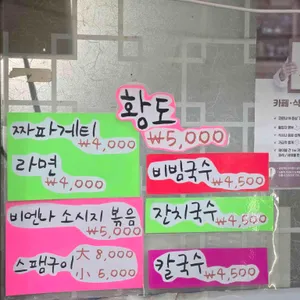 황도
₩5,000
짜파게티
₩4,000
라면
₩4,000
비빔국수
₩4,500
비언나 소시지 볶음
₩5,000
잔치국수
₩4,500
스팸구이 大 8,000
小 5,000
칼국수
₩4,500
카페·식